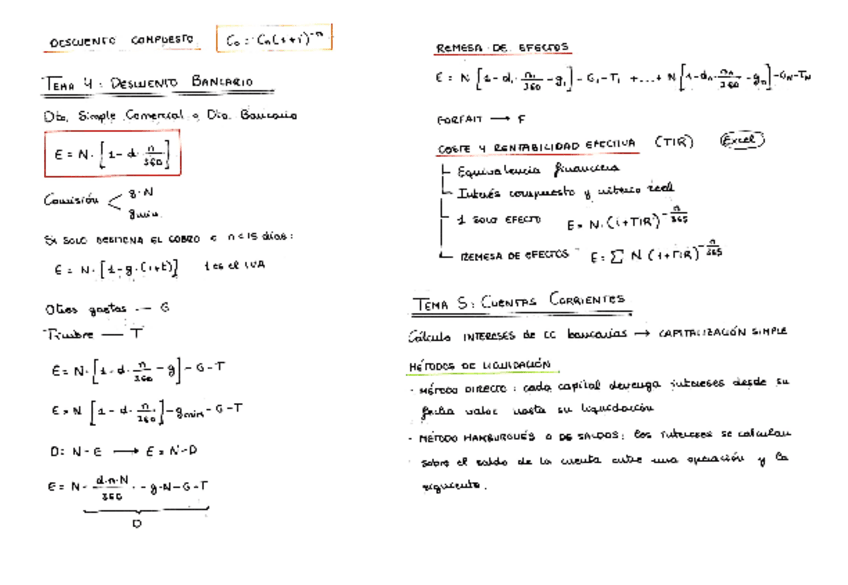 DESCUENTO COMPUESTO C₀ = Cn(1+i)⁻ⁿ
TEMA 4: DESCUENTO BANCARIO
Dto. Simple Comercial o Dto. Bancario
E = N · [1 - d · n/360]
Comisión < g·N
gmin.
Si SOLO GESTIONA EL COBRO o n<15 días:
E = N · [1-g·(1+t)] t es el IVA
Otros gastos — G
Timbre — T
E = N · [1 - d · n/360 - g] - G - T
E = N [1 - d · n/360] - gmin - G - T
D = N - E → E = N - D
E = N - d·n·N/360 - g·N - G - T
D
REMESA DE EFECTOS
E = N · [1 - d₁ · n₁/360 - g₁] - G₁ - T₁ + ... + N [1 - dn · nn/360 - gn] - GN - TN
FORFAIT → F
COSTE Y RENTABILIDAD EFECTIVA (TIR) Excel
Equivalencia financiera
Interés compuesto y criterio real
1 SOLO EFECTO E = N · (1+TIR)^-n/365
REMESA DE EFECTOS E = ∑ N (1+TIR)^-n/365
TEMA 5: CUENTAS CORRIENTES
Cálculo INTERESES de CC bancarias → CAPITALIZACIÓN SIMPLE
MÉTODOS DE LIQUIDACIÓN
· MÉTODO DIRECTO: cada capital devenga intereses desde su
fecha valor hasta su liquidación
· MÉTODO HAMBURGUÉS O DE SALDOS: los intereses se calculan
sobre el saldo de la cuenta entre una operación y la
siguiente.